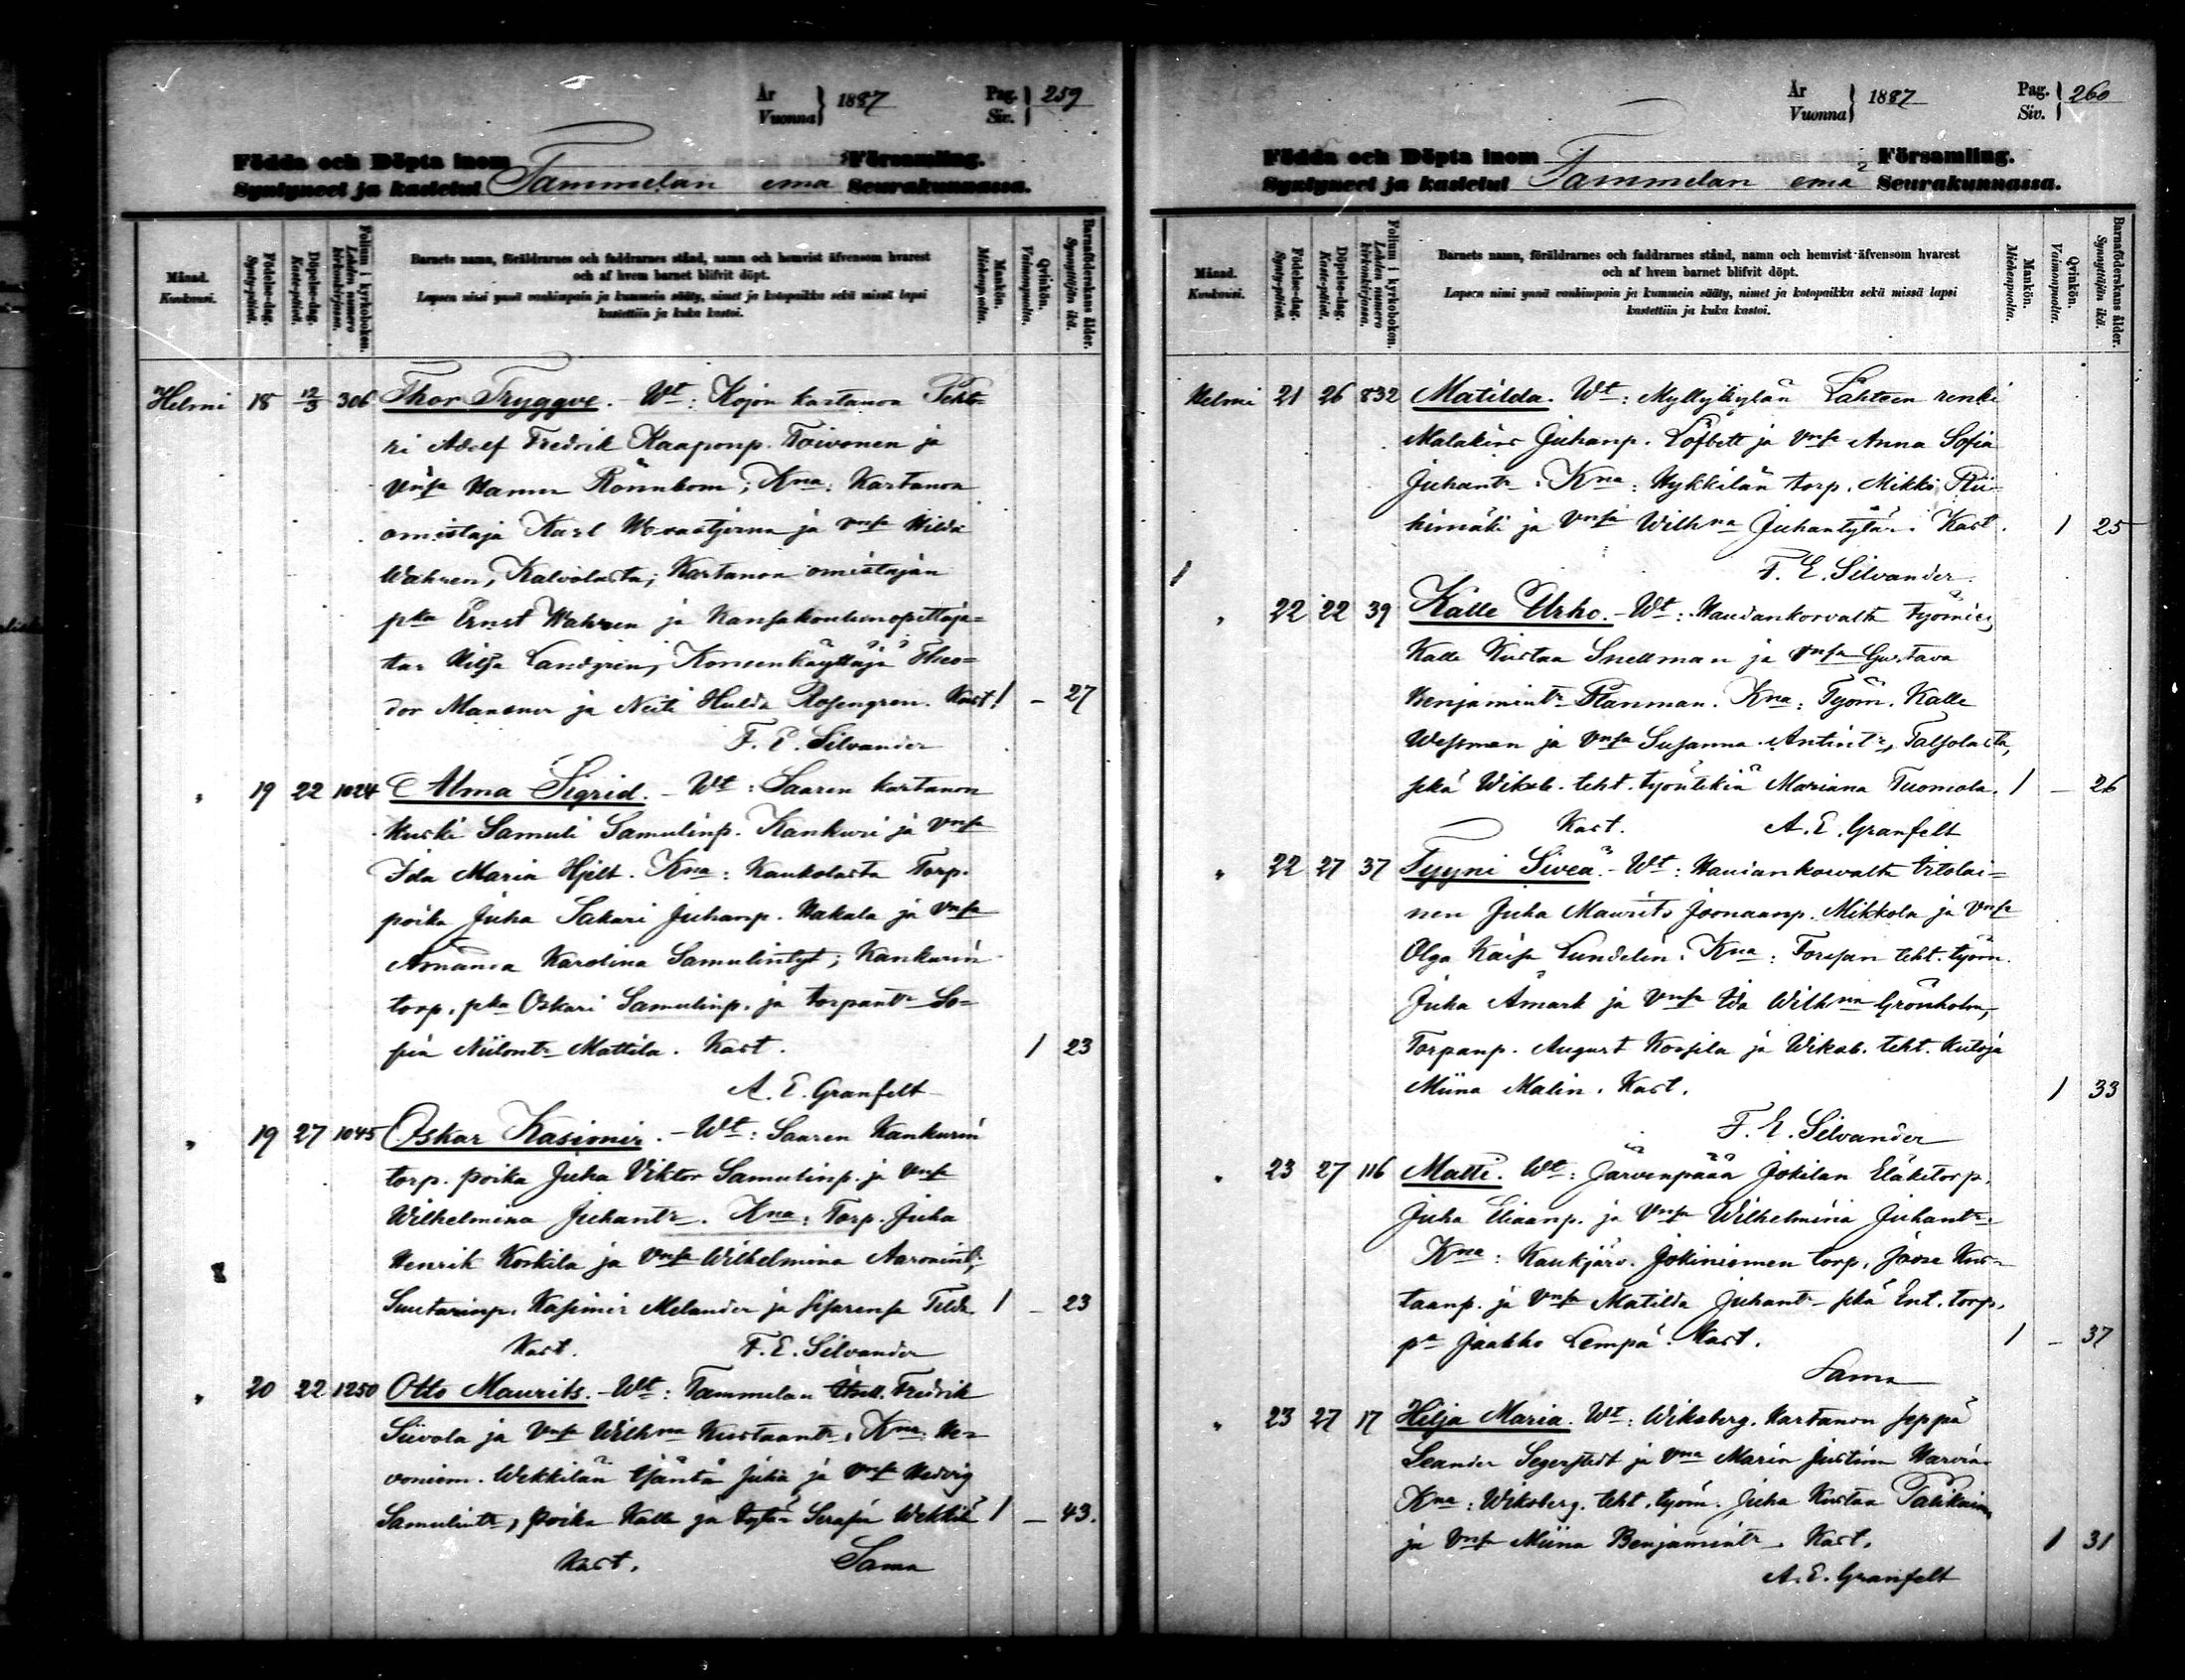 År
Vuonna } 1887
Pag.
Siv. } 259
Födda och Döpta inom Församling.
Syntyneet ja kastetut Tammelan emä Seurakunnassa.
Månad.
Kuukausi.
Födelse-dag.
Synty-päivä.
Döpelse-dag.
Kaste-päivä.
Folium i kyrkoboken.
Lehden numero kirkonkirjassa.
Barnets namn, föräldrarnes och faddrarnes stånd, namn och hemvist äfvensom hvarest
och af hvem barnet blifvit döpt.
Lapsen nimi ynnä vanhimpain ja kummein sääty, nimet ja kotopaikka sekä missä lapsi
kastettiin ja kuka kastoi.
Mankön.
Miehenpuolta.
Qvinkön.
Vaimonpuolta.
Barnaföderskans ålder.
Synnyttäjän ikä.
Helmi 18 12/3 306 Thor Tryggve. - Wt: Kojon kartanon Pehto-
ri Adolf Fredrik Kaaponp. Toivonen ja
vnsa Hanna Rönnbom; Kna: Kartanon
omistaja Karl Wrastjerna ja vnsa Hilda
Wahren, Kalvolasta; Kartanon omistajan
pka Ernst Wahren ja Kansakoulunopettaja-
tar Hilja Landgren, Koneenkäyttäjä Theo-
dor Mansner ja Neiti Hulda Rosengren. Kast. 1 - 27
F. E. Silvander
" 19 22 1024 Alma Sigrid. - Wt: Saaren kartanon
Kuski Samuli Samulinp. Kankuri ja vnsa
Ida Maria Hjelt. Kna: Kaukolasta Torp.
poika Juha Sakari Juhanp. Hakala ja vnsa
Amanda Karolina Samulintyt; Kankurin
torp. pka Oskari Samulinp. ja torpantr So-
fia Niilontr Mattila. Kast. 1 23
A. E. Granfelt
" 19 27 1045 Oskar Kasimir. - Wt: Saaren Kankurin
torp. poika Juha Viktor Samulinp. ja vnsa
Wilhelmina Juhantr. Kna: Torp. Juha
Henrik Koskila ja vnsa Wilhelmina Aaronintr,
Suutarinp. Kasimir Melander ja sisarensa Tilda. 1 - 23
Kast. F. E. Silvander
" 20 22 1250 Otto Maurits. - Wt: Tammelan Fredrik
Siivola ja vnsa Wilhna Kustaantr. Kna: He-
voniem. Wekkilän isäntä Juha ja vnsa Hedvig
Samulintr, poika Kalle ja tytär Serafia Wekkilä 1 - 43.
Kast. Sama
År
Vuonna } 1887
Pag.
Siv. } 260
Födda och Döpta inom Församling.
Syntyneet ja kastetut Tammelan emä Seurakunnassa.
Månad.
Kuukausi.
Födelse-dag.
Synty-päivä.
Döpelse-dag.
Kaste-päivä.
Folium i kyrkoboken.
Lehden numero kirkonkirjassa.
Barnets namn, föräldrarnes och faddrarnes stånd, namn och hemvist äfvensom hvarest
och af hvem barnet blifvit döpt.
Lapsen nimi ynnä vanhimpain ja kummein sääty, nimet ja kotopaikka sekä missä lapsi
kastettiin ja kuka kastoi.
Mankön.
Miehenpuolta.
Qvinkön.
Vaimonpuolta.
Barnaföderskans ålder.
Synnyttäjän ikä.
Helmi 21 26 832 Matilda. Wt: Myllykylän Lähteen renki
Malakias Juhanp. Löfbett ja vnsa Anna Sofia
Juhantr. Kna: Kykkilän torp. Mikko Rii-
himäki ja vnsa Wilhna Juhantytär. Kast. 1 25
F. E. Silvander.
" 22 22 39 Kalle Urho. - Wt: Haudankorvalta Työmies
Kalle Kustaa Snellman ja vnsa Gustava
Benjamintr Planman. Kna: Työm. Kalle
Wessman ja vnsa Susanna Antintr, Talsolasta,
sekä Wiksb. teht. työntekiä Mariana Tuomola. 1 - 26
Kast. A. E. Granfelt
" 22 27 37 Tyyni Siveä. - Wt: Haudankorvalta itelai-
nen Juha Maurits Joonaanp. Mikkola ja vnsa
Olga Kaisa Lundelin. Kna: Forssan teht. työm.
Juha Åmark ja vnsa Ida Wilhna Grönholm,
Torpanp. August Kossila ja Wiksb. teht. kutoja
Miina Malin. Kast. 1 33
F. E. Silvander
" 23 27 116 Matti. Wt: Järvenpään Jokilan Eläkitorp.
Juha Eliaanp. ja vnsa Wilhelmina Juhantr.
Kna: Kaukjärv. Jokiniemen torp. Joose Kus-
taanp. ja vnsa Matilda Juhantr sekä Ent. torp.
pa Jaakko Lempä. Kast. 1 - 37
Sama
" 23 27 17 Hilja Maria. Wt: Wiksberg. Kartanon seppä
Leander Segerstedt ja vna Maria Justina Harvia.
Kna: Wiksberg. teht. työm. Juha Kustaa Palikainen
ja vnsa Miina Benjamintr. Kast. 1 31
A. E. Granfelt